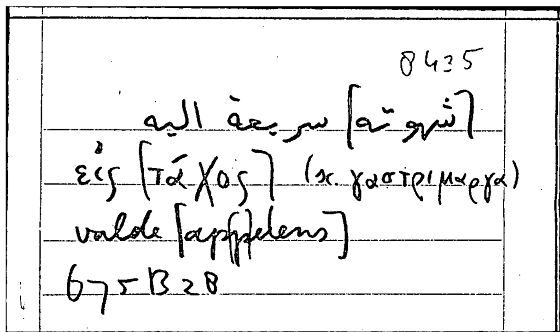 8435
[شهوته] سريعة اليه
εἰς [τάχος] (sc. γαστρίμαργα)
valde [appetens]
675B28